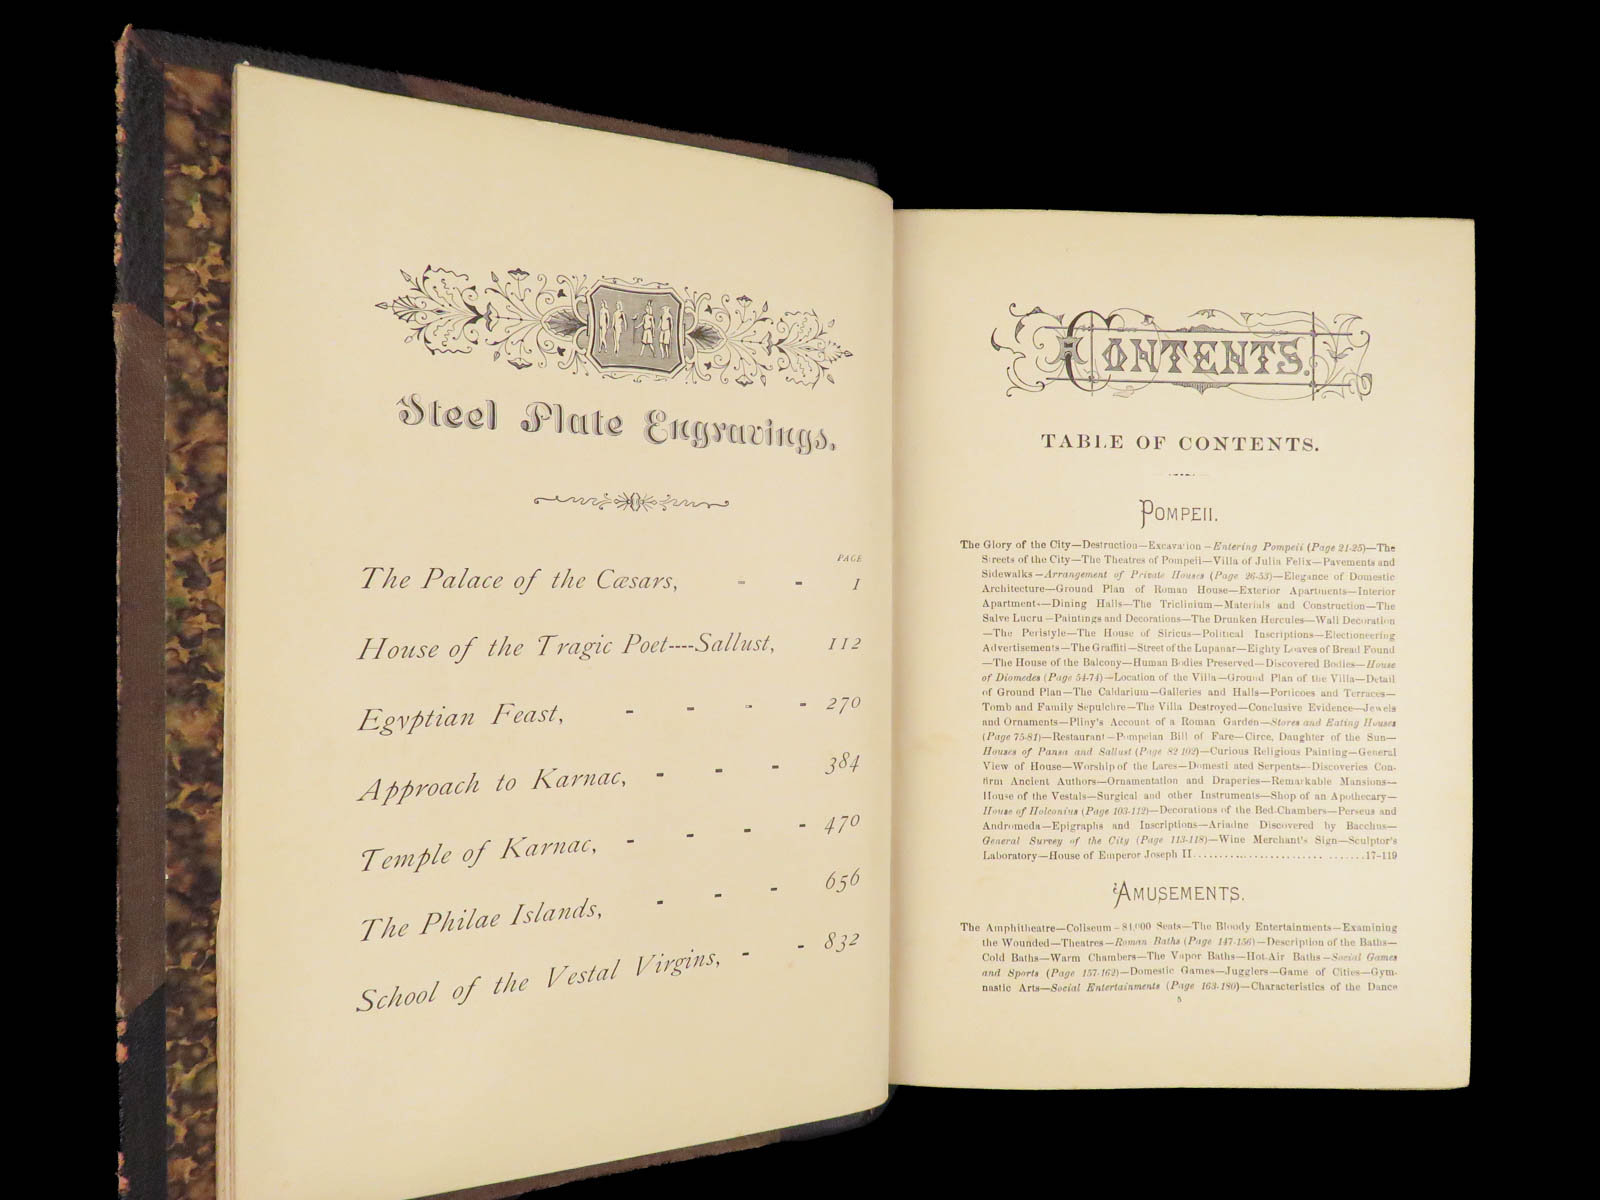 Steel Plate Engravings.
PAGE
The Palace of the Cæsars, - - 1
House of the Tragic Poet----Sallust, 112
Egyptian Feast, - - - - 270
Approach to Karnac, - - - 384
Temple of Karnac, - - - - 470
The Philae Islands, - - - 656
School of the Vestal Virgins, - - 832
CONTENTS.
TABLE OF CONTENTS.
POMPEII.
The Glory of the City—Destruction—Excavation—Entering Pompeii (Page 21-25)—The
Streets of the City—The Theatres of Pompeii—Villa of Julia Felix—Pavements and
Sidewalks—Arrangement of Private Houses (Page 26-53)—Elegance of Domestic
Architecture—Ground Plan of Roman House—Exterior Apartments—Interior
Apartments—Dining Halls—The Triclinium—Materials and Construction—The
Salve Lucru—Paintings and Decorations—The Drunken Hercules—Wall Decoration
—The Peristyle—The House of Siricus—Political Inscriptions—Electioneering
Advertisements—The Graffiti—Street of the Lupanar—Eighty Loaves of Bread Found
—The House of the Balcony—Human Bodies Preserved—Discovered Bodies—House
of Diomedes (Page 54-74)—Location of the Villa—Ground Plan of the Villa—Detail
of Ground Plan—The Caldarium—Galleries and Halls—Porticoes and Terraces—
Tomb and Family Sepulchre—The Villa Destroyed—Conclusive Evidence—Jewels
and Ornaments—Pliny's Account of a Roman Garden—Stores and Eating Houses
(Page 75-81)—Restaurant—Pompeian Bill of Fare—Circe, Daughter of the Sun—
Houses of Pansa and Sallust (Page 82-102)—Curious Religious Painting—General
View of House—Worship of the Lares—Domesticated Serpents—Discoveries Con-
firm Ancient Authors—Ornamentation and Draperies—Remarkable Mansions—
House of the Vestals—Surgical and other Instruments—Shop of an Apothecary—
House of Holconius (Page 103-112)—Decorations of the Bed-Chambers—Perseus and
Andromeda—Epigraphs and Inscriptions—Ariadne Discovered by Bacchus—
General Survey of the City (Page 113-118)—Wine Merchant's Sign—Sculptor's
Laboratory—House of Emperor Joseph II..............................17-119
AMUSEMENTS.
The Amphitheatre—Coliseum—84,000 Seats—The Bloody Entertainments—Examining
the Wounded—Theatres—Roman Baths (Page 147-156)—Description of the Baths—
Cold Baths—Warm Chambers—The Vapor Baths—Hot-Air Baths—Social Games
and Sports (Page 157-162)—Domestic Games—Jugglers—Game of Cities—Gym-
nastic Arts—Social Entertainments (Page 163-180)—Characteristics of the Dance
5